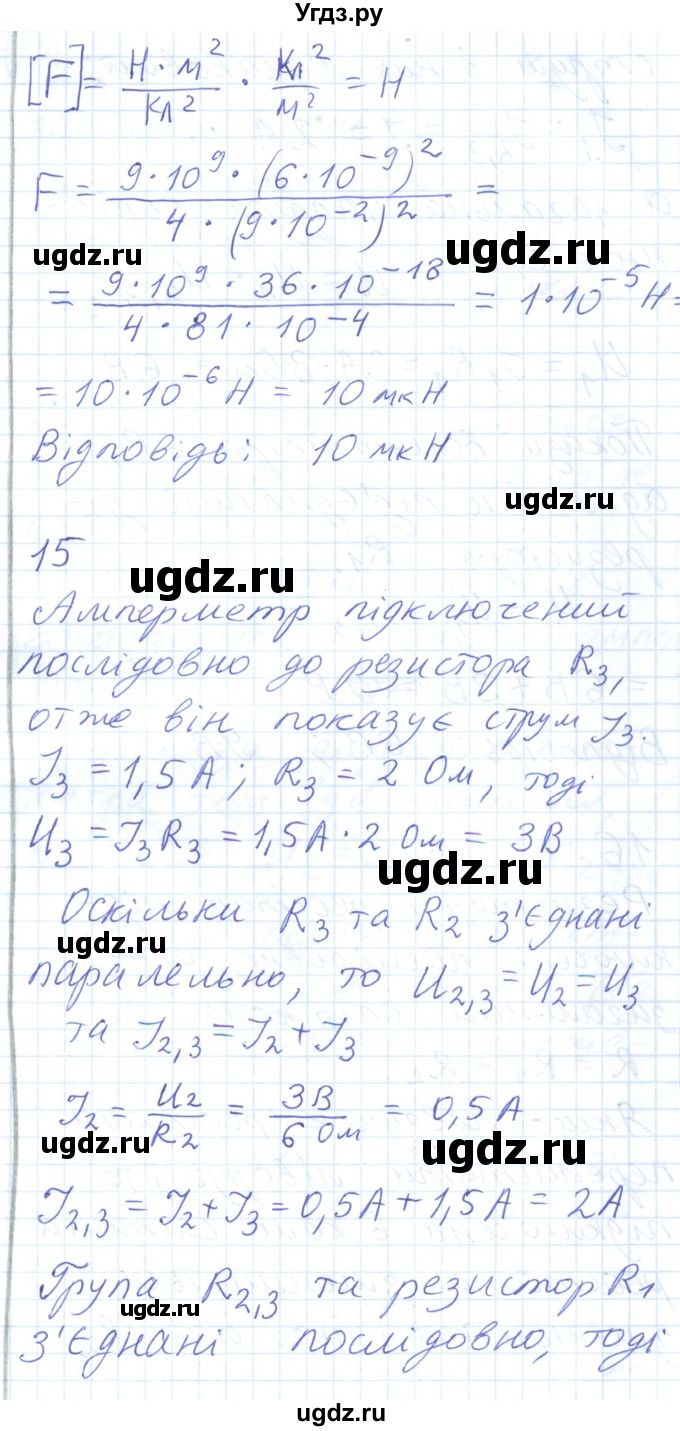 Угдз.ру
[F] = Н · м² / Кл² · Кл² / м² = Н
F = 9 · 10⁹ · (6 · 10⁻⁹)² / 4 · (9 · 10⁻²)² =
ugdz.ru ugdz.ru
= 9 · 10⁹ · 36 · 10⁻¹⁸ / 4 · 81 · 10⁻⁴ = 1 · 10⁻⁵ Н =
= 10 · 10⁻⁶ Н = 10 мкН
Відповідь: 10 мкН
ugdz.ru
15
ugdz.ru
Амперметр підключений
послідовно до резистора R₃,
отже він показує струм I₃.
I₃ = 1,5 А; R₃ = 2 Ом, тоді
U₃ = I₃R₃ = 1,5А · 2 Ом = 3В
ugdz.ru
Оскільки R₃ та R₂ з'єднані
ugdz.ru
паралельно, то U₂,₃ = U₂ = U₃
та I₂,₃ = I₂ + I₃
I₂ = U₂ / R₂ = 3В / 6 Ом = 0,5 А
ugdz.ru ugdz.ru
I₂,₃ = I₂ + I₃ = 0,5А + 1,5А = 2А
Група R₂,₃ та резистор R₁
ugdz.ru
з'єднані послідовно, тоді
ugdz.ru